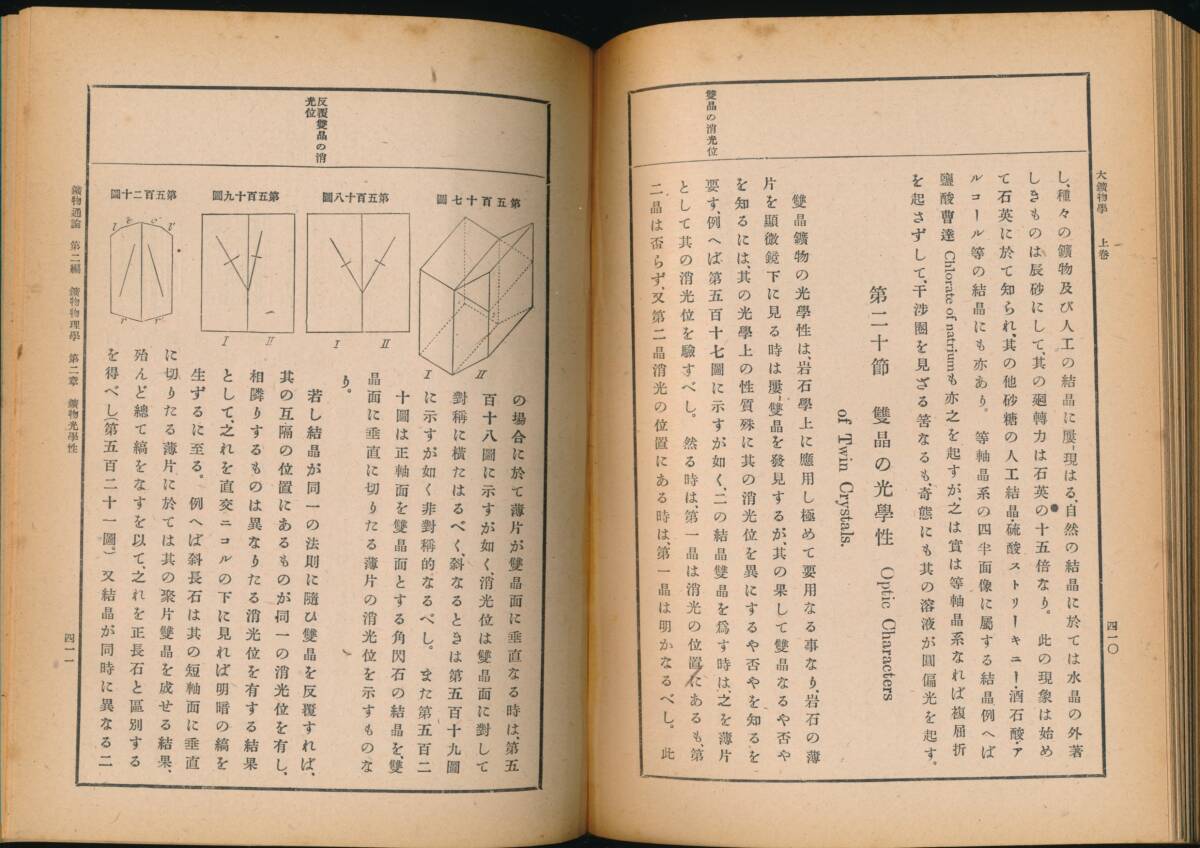 大鑛物學　上卷
四一〇
雙晶の消光位
し、種々の鑛物及び人工の結晶に屢〻現はる、自然の結晶に於ては水晶の外著
しきものは辰砂にして、其の廻轉力は石英の十五倍なり。此の現象は始め
て石英に於て知られ、其の他砂糖の人工結晶、硫酸ストリーキニー、酒石酸、ア
ルコール等の結晶にも亦あり。等軸晶系の四半面像に屬する結晶例へば
鹽酸曹達 Chlorate of natrium も亦之を起すが、之は實は等軸晶系なれば複屈折
を起さずして、干涉圈を見ざる筈なるも、奇態にも其の溶液が圓偏光を起す。
第二十節　雙晶の光學性 Optic Characters
of Twin Crystals.
雙晶鑛物の光學性は、岩石學上に應用し極めて要用なる事なり、岩石の薄
片を顯微鏡下に見る時は屢〻雙晶を發見するが、其の果して雙晶なるや否や
を知るには、其の光學上の性質殊に其の消光位を異にするや否やを知るを
要す、例へば第五百十七圖に示すが如く、二の結晶雙晶を爲す時は、之を薄片
として其の消光位を驗すべし。然る時は、第一晶は消光の位置にあるも、第
二晶は否らず、又第二晶消光の位置にある時は、第一晶は明かなるべし。此
反覆雙晶の消
光位
第五百十七圖
I
II
第五百十八圖
I
II
第五百十九圖
I
II
第五百二十圖
l
e
o'
l'
r
r'
の場合に於て薄片が雙晶面に垂直なる時は、第五
百十八圖に示すが如く、消光位は雙晶面に對して
對稱に橫たはるべく、斜なるときは第五百十九圖
に示すが如く非對稱的なるべし。また第五百二
十圖は正軸面を雙晶面とする角閃石の結晶を、雙
晶面に垂直に切りたる薄片の消光位を示すものな
り。
若し結晶が同一の法則に隨ひ雙晶を反覆すれば、
其の互隔の位置にあるものが同一の消光位を有し、
相隣りするものは異なりたる消光位を有する結果
として、之れを直交ニコルの下に見れば明暗の縞を
生ずるに至る。例へば斜長石は其の短軸面に垂直
に切りたる薄片に於ては其の聚片雙晶を成せる結果、
殆んど總て縞をなすを以て、之れを正長石と區別する
を得べし(第五百二十一圖。)又結晶が同時に異なる二
鑛物通論　第二編　鑛物物理學　第二章　鑛物光學性
四一一